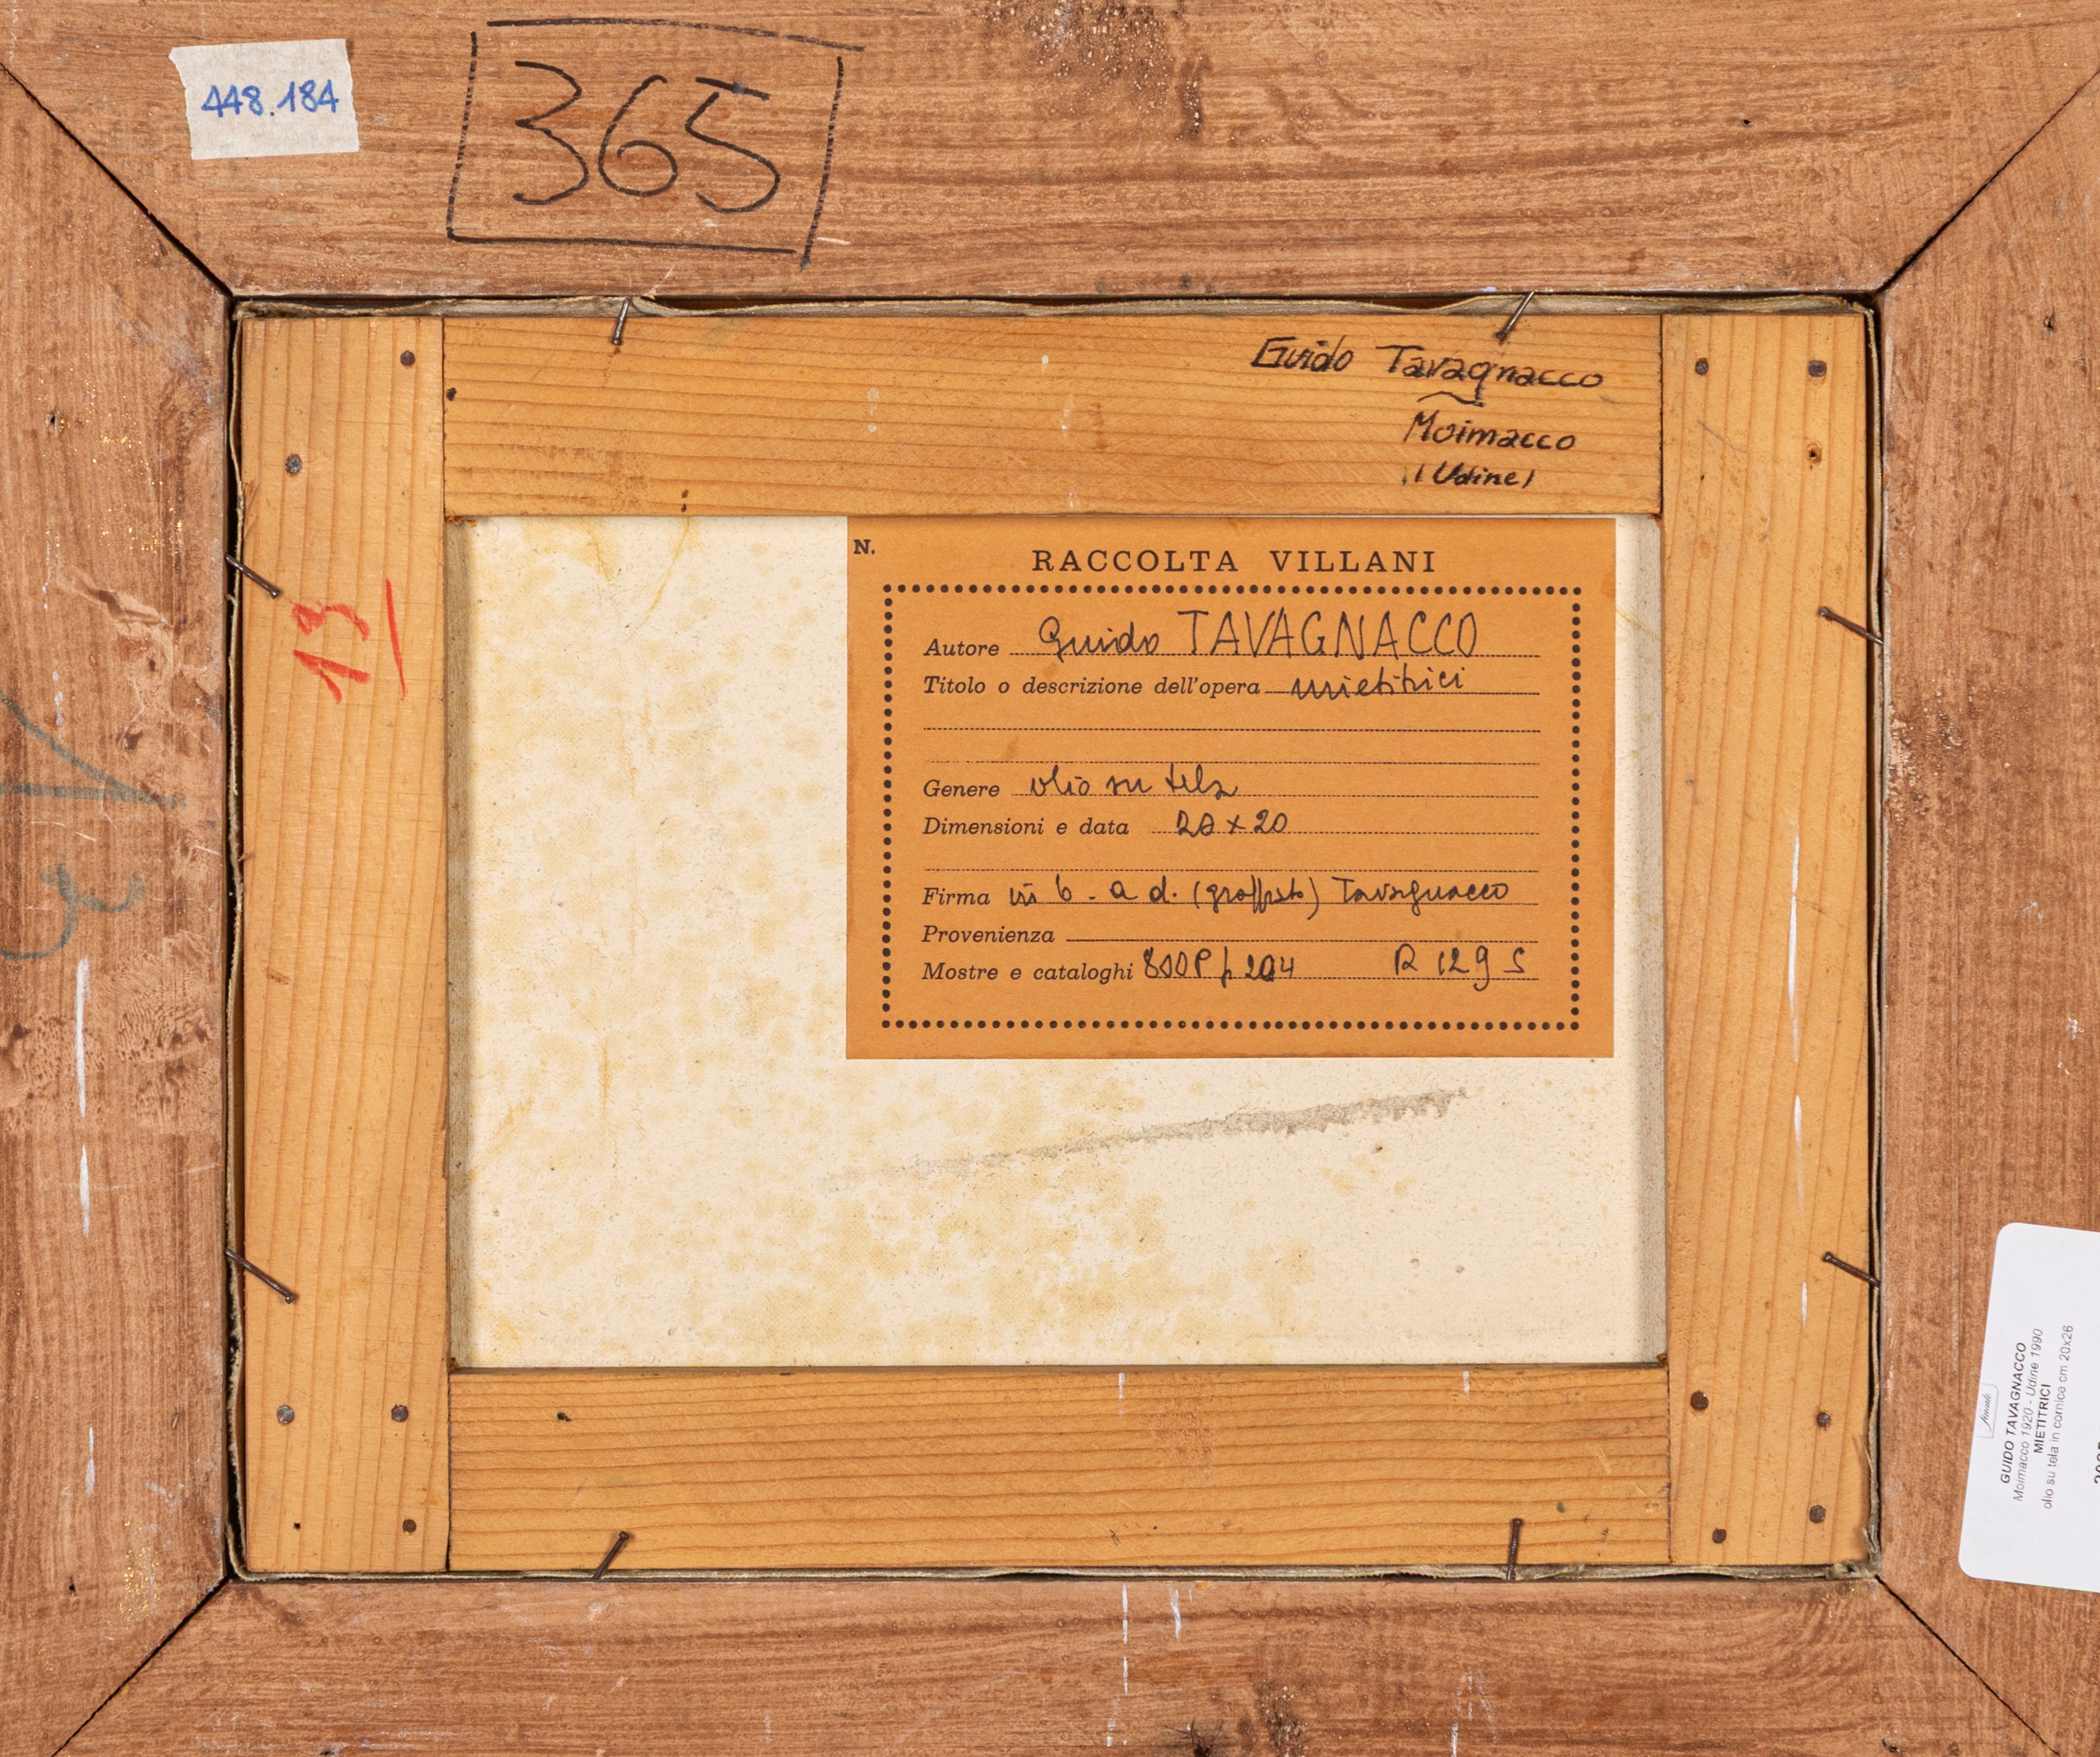 448.184
365
Guido Tavagnacco
Moimacco
(Udine)
13/
N.
RACCOLTA VILLANI
Autore Guido TAVAGNACCO
Titolo o descrizione dell'opera mietitrici
Genere olio su tela
Dimensioni e data 20
Firma in b. a d. (graffito) Tavagnacco
Provenienza
Mostre e cataloghi 204 R 129 S
GUIDO TAVAGNACCO
Moimacco 1920 - Udine 1990
MIETITRICI
olio su tela in cornice cm 20x26